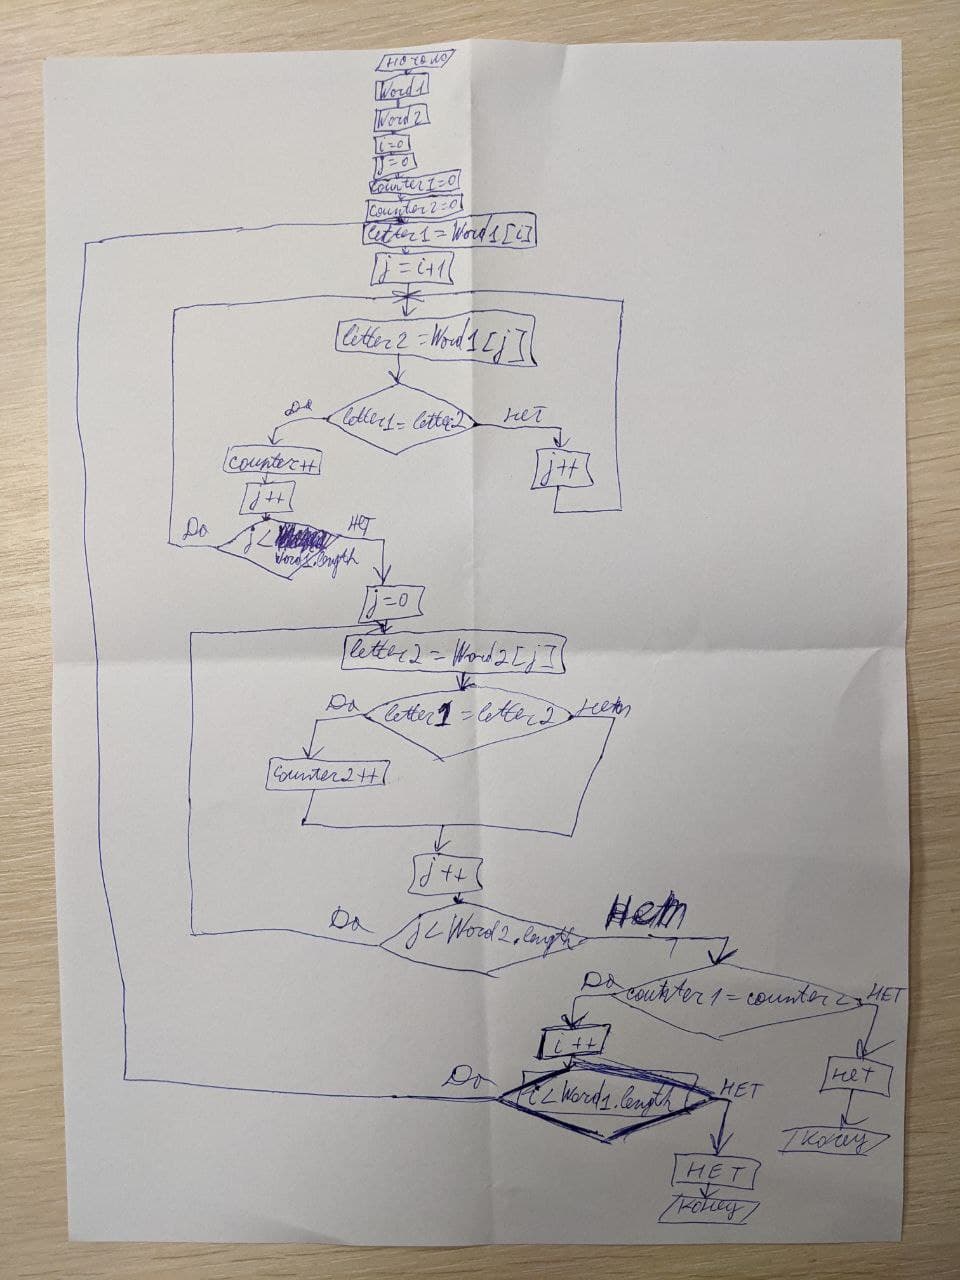 начало
Word1
Word2
i=0
j=0
counter1=0
counter2=0
letter1=Word1[i]
j=i+1
letter2=Word1[j]
Да letter1=letter2 нет
counter++
j++
j++
Да j< нет
Word1.length
j=0
letter2=Word2[j]
Да letter1=letter2 нет
counter2++
j++
Да j<Word2.length Нет
Да counter1=counter2 НЕТ
i++
нет
Да i<Word1.length НЕТ
/конец/
НЕТ
/конец/